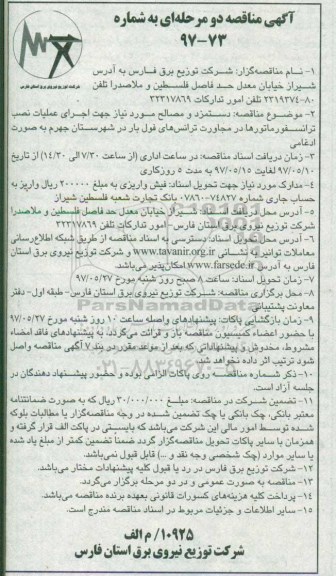 آگهی مناقصه دو مرحله‌ای به شماره
۹۷-۷۳
شرکت توزیع نیروی برق استان فارس
۱- نام مناقصه‌گزار: شرکت توزیع برق فارس به آدرس
شیراز خیابان معدل حد فاصل فلسطین و ملاصدرا تلفن
۸۰-۳۲۳۱۹۳۷۴ تلفن امور تدارکات ۳۲۳۱۷۸۶۹
۲- موضوع مناقصه: دستمزد و مصالح مورد نیاز جهت اجرای عملیات نصب
ترانسفورماتورها در مجاورت ترانس‌های فول بار در شهرستان جهرم به صورت
ادغامی
۳- زمان دریافت اسناد مناقصه: در ساعت اداری (از ساعت ۷/۳۰ الی ۱۴/۳۰) از تاریخ
۹۷/۰۵/۱۰ لغایت ۹۷/۰۵/۱۵ به مدت ۵ روزکاری
۴- مدارک مورد نیاز جهت تحویل اسناد: فیش واریزی به مبلغ ۲۰۰۰۰۰ ریال واریز به
حساب جاری شماره ۰۷۸۶۰-۷۴۸۲۷ بانک تجارت شعبه فلسطین شیراز
۵- آدرس محل دریافت اسناد: شیراز خیابان معدل حد فاصل فلسطین و ملاصدرا
شرکت توزیع نیروی برق استان فارس- امور تدارکات تلفن ۳۲۳۱۷۸۶۹
۶- آدرس محل تحویل اسناد: دسترسی به اسناد مناقصه از طریق شبکه اطلاع‌رسانی
معاملات توانیر به نشانی www.tavanir.org.ir و شرکت توزیع نیروی برق استان
فارس به آدرس www.farsede.ir امکان‌پذیر می‌باشد.
۷- زمان تحویل اسناد: ساعت ۸ صبح روز شنبه مورخ ۹۷/۰۵/۲۷
۸- محل برگزاری مناقصه: شرکت توزیع نیروی برق استان فارس- طبقه اول- دفتر
معاونت پشتیبانی
۹- زمان بازگشایی پاکات: پیشنهادهای واصله ساعت ۱۰ روز شنبه مورخ ۹۷/۰۵/۲۷
با حضور اعضاء کمیسیون مناقصه باز و قرائت می‌گردد، به پیشنهادهای فاقد امضاء
مشروط، مخدوش و پیشنهاداتی که بعد از موعد مقرر در بند ۷ آگهی مناقصه واصل
شود ترتیب اثر داده نخواهد شد.
۱۰- ذکر شماره مناقصه روی پاکات الزامی بوده و حضور پیشنهاد دهندگان در
جلسه آزاد است.
۱۱- تضمین شرکت در مناقصه: مبلغ ۳۰/۰۰۰/۰۰۰ ریال که به صورت ضمانتنامه
معتبر بانکی، چک بانکی یا چک تضمین شده در وجه مناقصه‌گزار یا مطالبات بلوکه
شده توسط امور مالی این شرکت می‌باشد که بایستی در پاکت الف قرار گرفته و
همزمان با سایر پاکات تحویل مناقصه‌گزار گردد ضمنا تضمین کمتر از مبلغ یاد شده
یا سایر موارد (چک شخصی وجه نقد و ...) قابل قبول نمی‌باشد.
۱۲- شرکت توزیع برق فارس در رد یا قبول کلیه پیشنهادات مختار می‌باشد.
۱۳- مناقصه به صورت عمومی و در دو مرحله برگزار می‌گردد.
۱۴- پرداخت کلیه هزینه‌های کسورات قانونی بعهده برنده مناقصه می‌باشد.
۱۵- سایر اطلاعات و جزئیات مربوط در اسناد مناقصه مندرج است.
۱۰۹۲۵/ م الف
شرکت توزیع نیروی برق استان فارس